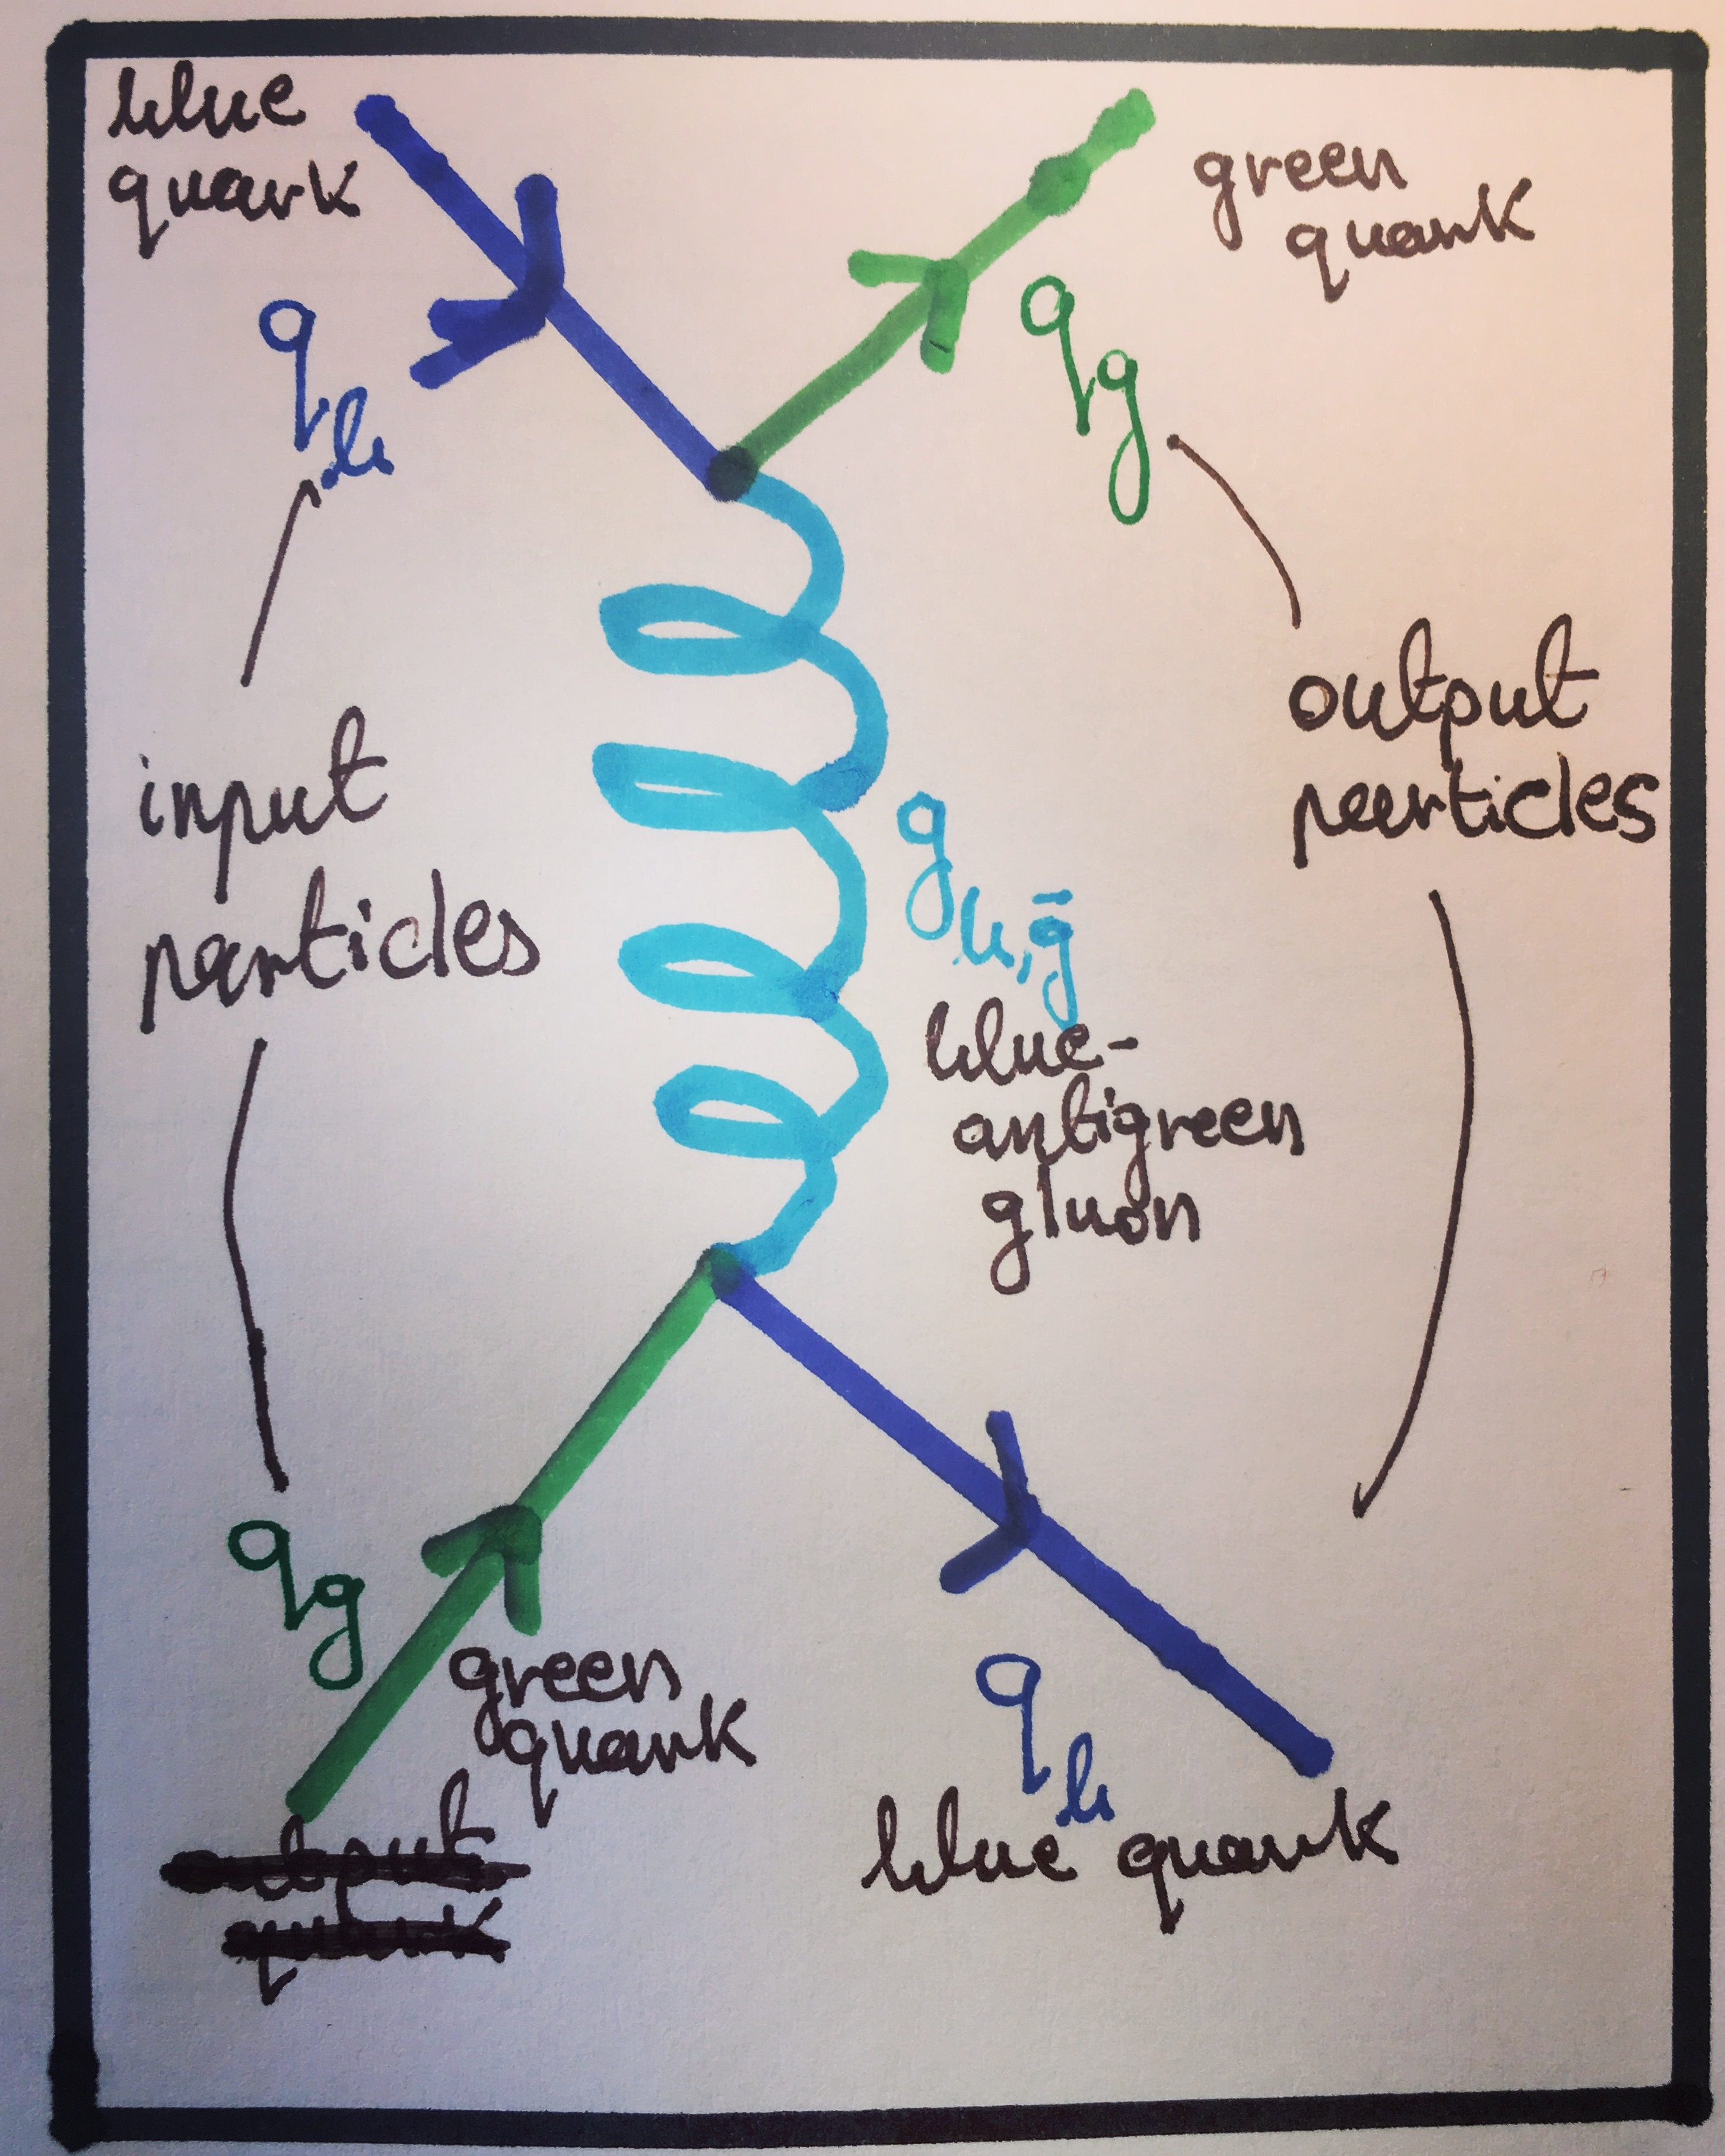 blue
quark
green
quark
q_b
q_g
input
particles
output
particles
g_b,ḡ
blue-
antigreen
gluon
q_g
green
quark
output
quark
q_b
blue quark